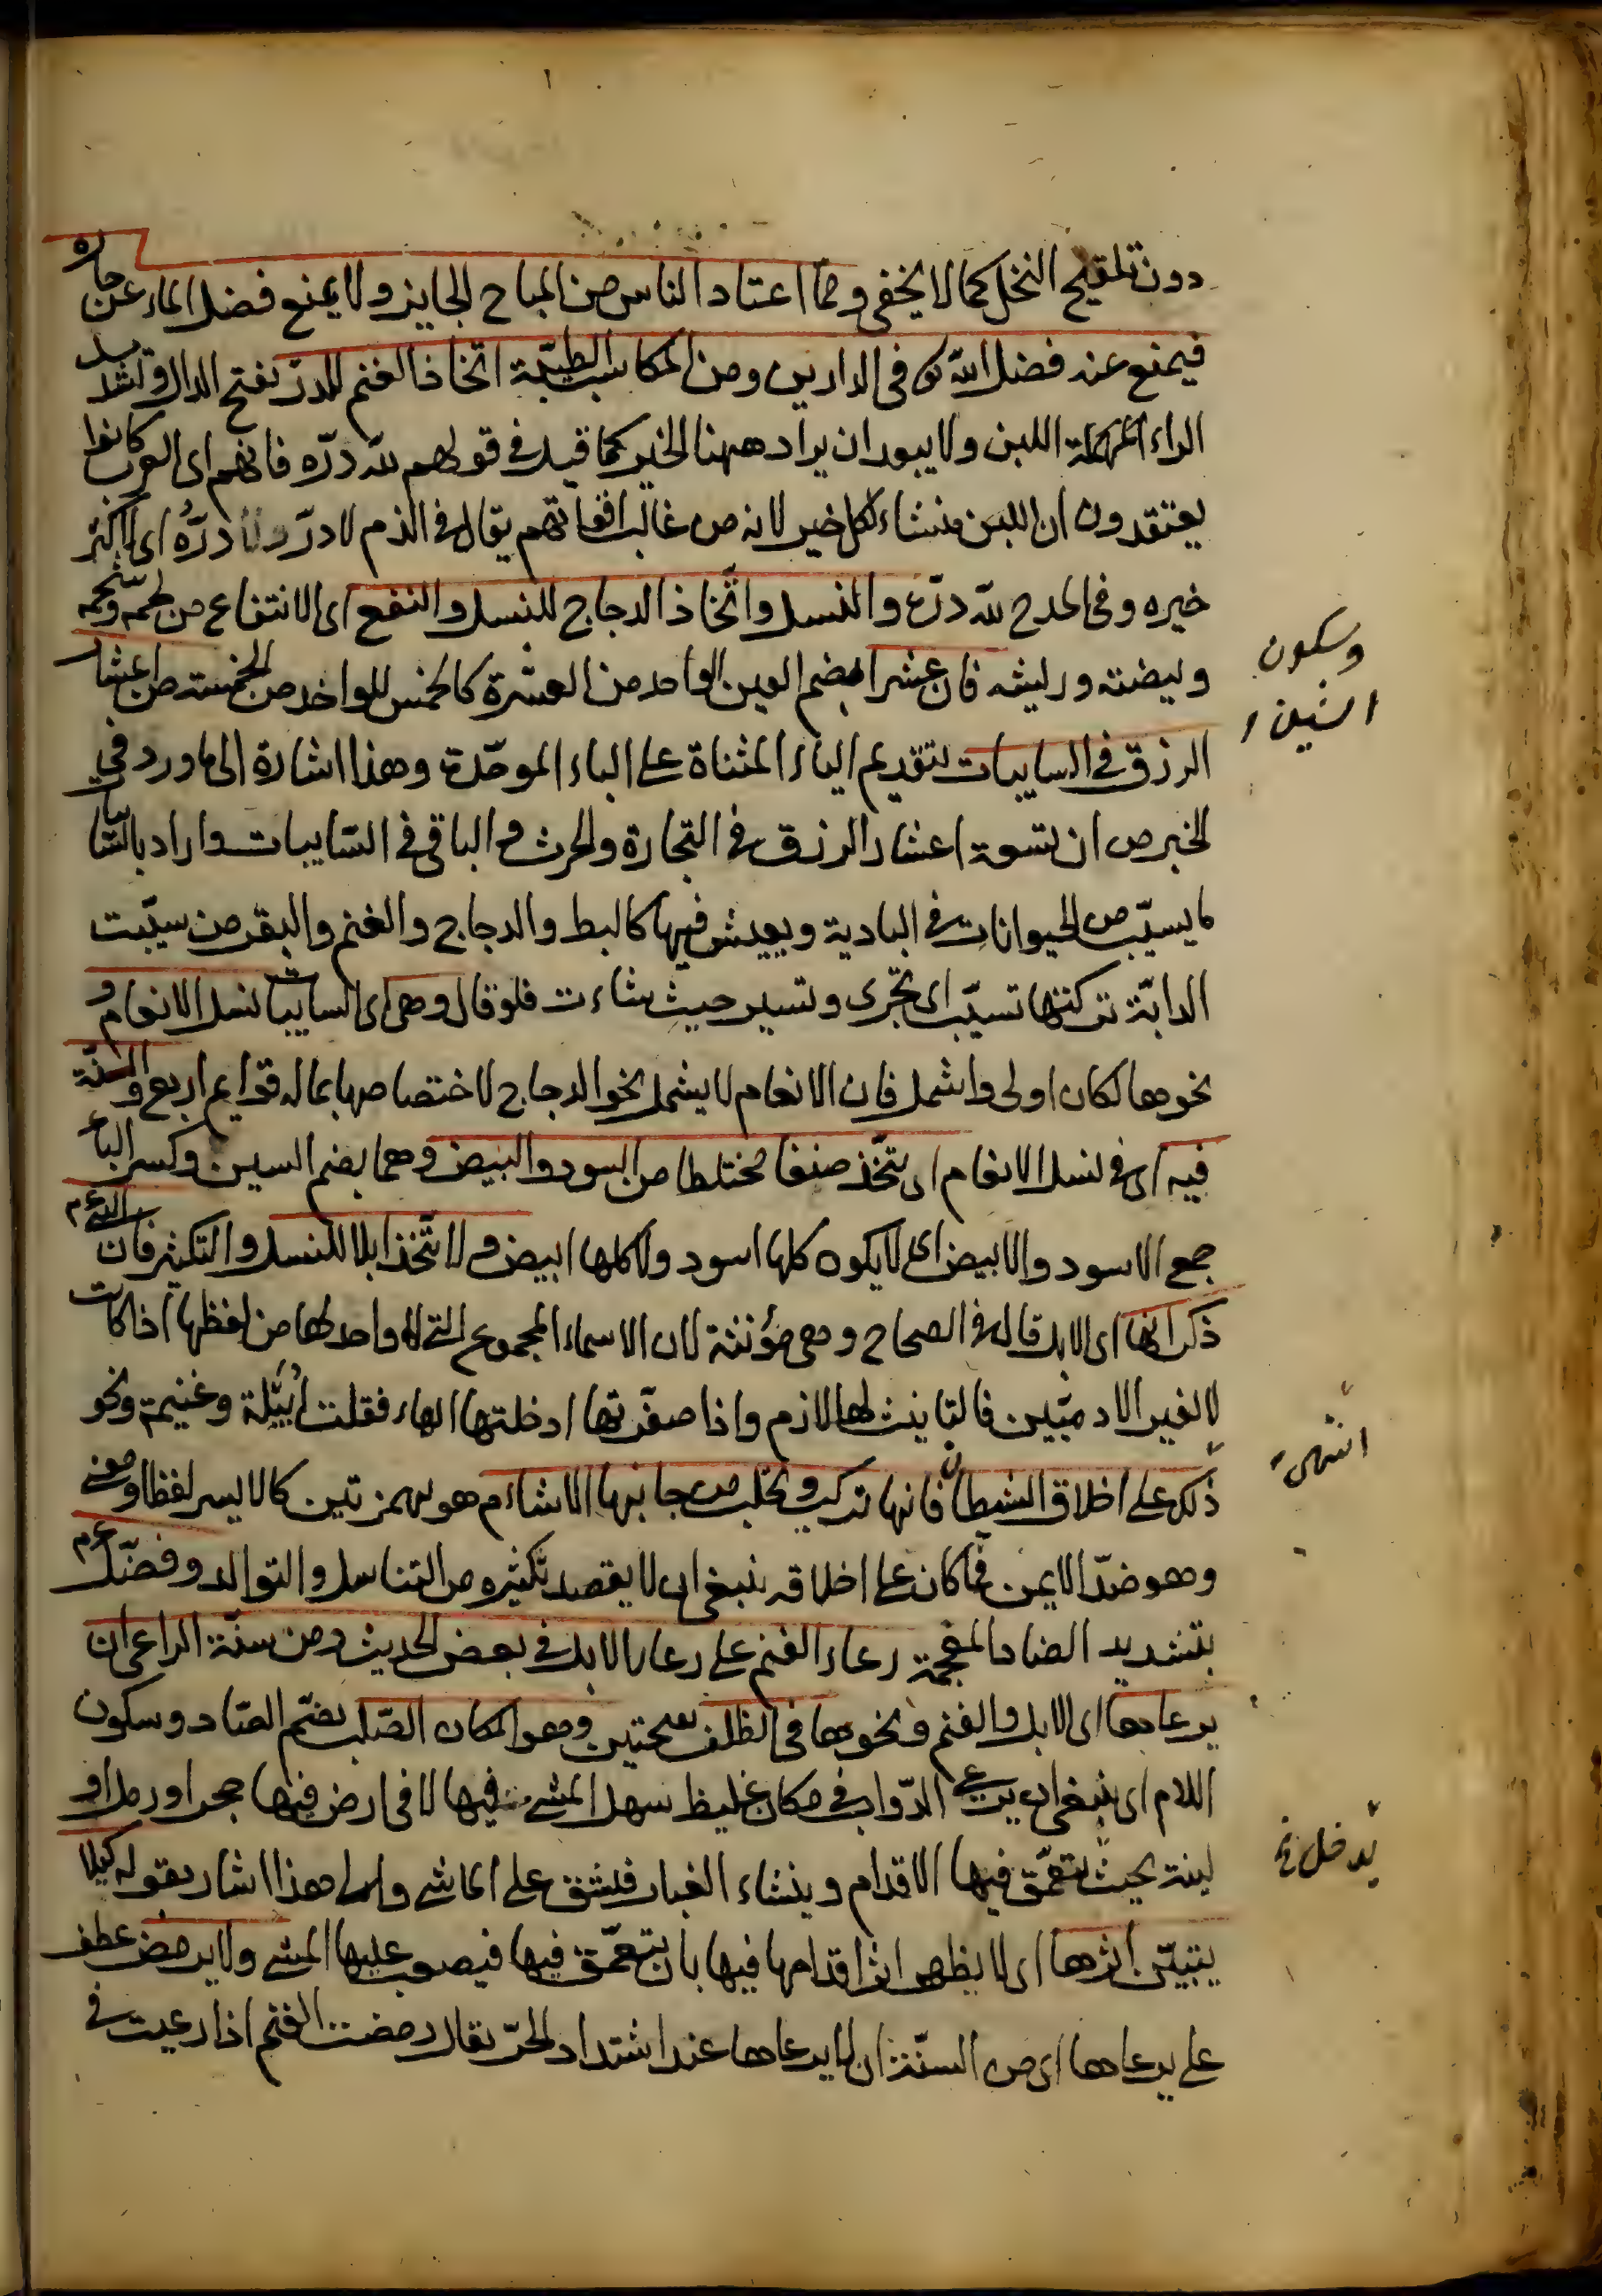 دون تلقيح النخل كما لا يخفى ومما اعتاد الناس من المباح الجايز ولا يمنع فضل الماء عن جاره
فيمنع عنه فضل الله في الدارين ومن المكاسب الطيبة اتخاذ الغنم للدرّ بفتح الدال وتشديد
الراء المهملة اللبن ولا يبعد ان يراد ههنا الخير كما قيل في قولهم لله درّه فانهم اى العرب كانوا
يعتقدون ان اللبن منشاء لكل خير لانه من غالب اقواتهم يقال في الذم لا درّ درّه اى لا كثر
خيره وفى المدح لله درّه والنسل واتّخاذ الدجاج للنسل والنفع اى الانتفاع من لحمه وشحمه
وبيضته وريشه فان عشرا بضم العين الواحد من العشرة كالخمس للواحد من الخمسة من اعشار
وسكون الشين
الرزق في السايبات بتقديم الياء المثناة على الباء الموحّدة وهذا اشارة الى ما ورد في
الخبر من ان تسعة اعشار الرزق في التجارة والحرث والباقى في السّايبات واراد بالسّايبات
ما يسيّب من الحيوانات في البادية ويعيش فيها كالبط والدجاج والغنم والبقر من سيّبت
الدابّة تركتها تسيّب اى تجرى وتسير حيث شاءت فلو قال وهى اى السايبات نسل الانعام و
نحوها لكان اولى واشمل فان الانعام لا يشمل نحو الدجاج لاختصاصها بما له قوايم اربع والسنّة
فيه اى في نسل الانعام ان يتّخذ صنفا مختلطا من السود والبيض وهما بضم السين وكسر الباء
جمع الاسود والابيض اى لا يكون كلها اسود ولا كلها ابيض ولا يتّخذ ابلا للنسل والتكثير فان النبى عم
ذكر انها اى الابل قال في الصحاح وهى مؤنثة لان الاسماء المجموع التى لا واحد لها من لفظها اذا كانت
لغير الادميّين فالتانيث لها لازم واذا صغّرتها ادخلتها الهاء فقلت اُبَيْلة وغنيمة ونحو
ذلك على اخلاق الشيطان فانها تركب وتحلب من جانبها الاشاءم هو بهمزتين كالايسر لفظا ومعنى
انتهى
وهو ضدّ الايمن فما كان على اخلاقه ينبغى ان لا يقصد تكثيره من التناسل والتوالد وفضّل عم
بتشديد الضاد المعجمة رعاء الغنم على رعاء الابل في بعض الحديث ومن سنّة الراعى ان
يرعاها اى الابل والغنم ونحوها في الظلف بفتحتين وهو المكان الصّلب بضم الصّاد وسكون
اللام اى ينبغى ان يرعى الدّواب في مكان غليظ سهل المشى فيها لا في ارض فيها حجر او رمل او
لينة بحيث يتعمّق فيها الاقدام وينشاء الغبار فيشق على الماشى والى هذا اشار بقوله كيلا
يدخل
يتبيّن اثرها اى لا يظهر اثر اقدامها فيها بان يتعمّق فيها فيصعب عليها المشى ولا يرمض عطف
على يرعاها اى من السنّة ان لا يرعاها عند اشتداد الحرّ يقال رمضت الغنم اذا رعيت في